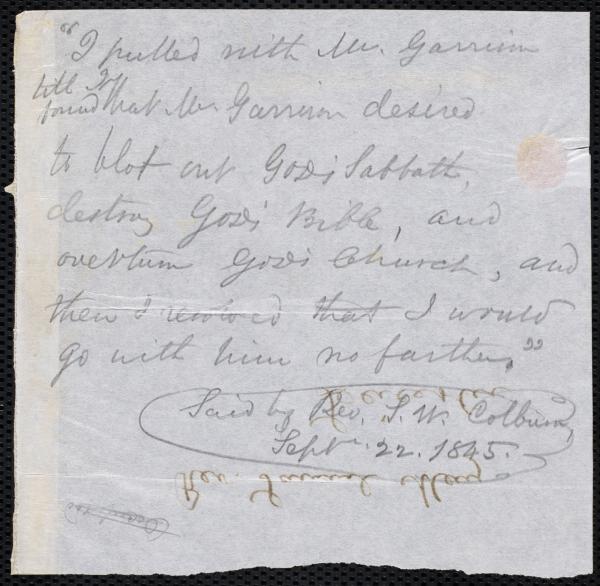 "I pulled with Mr. Garrison
till I
found that Mr. Garrison desired
to blot out God's Sabbath,
destroy God's Bible, and
overturn God's Church, and
then I resolved that I would
go with him no farther."
Said by Rev. S. W. Colburn,
Septr. 22. 1845.
Rev. Samuel May